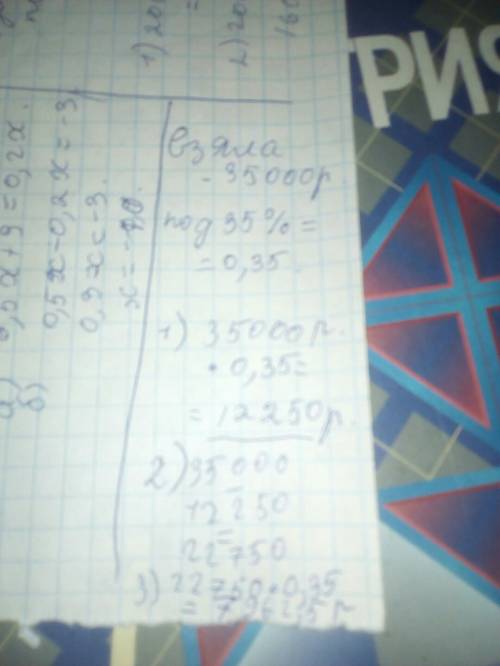 1) 20
2) 20
160
ТРИ
а) 0,5x + 3 = 0,2x.
б) 0,5x - 0,2x = -3
0,3x = -3.
x = -10.
взяла
- 35000р
под 35% =
= 0,35.
1) 35000р.
• 0,35=
= 12250р.
2) 35000
-
12250
=
22750
3) 22750 • 0,35
= 7962,5 р